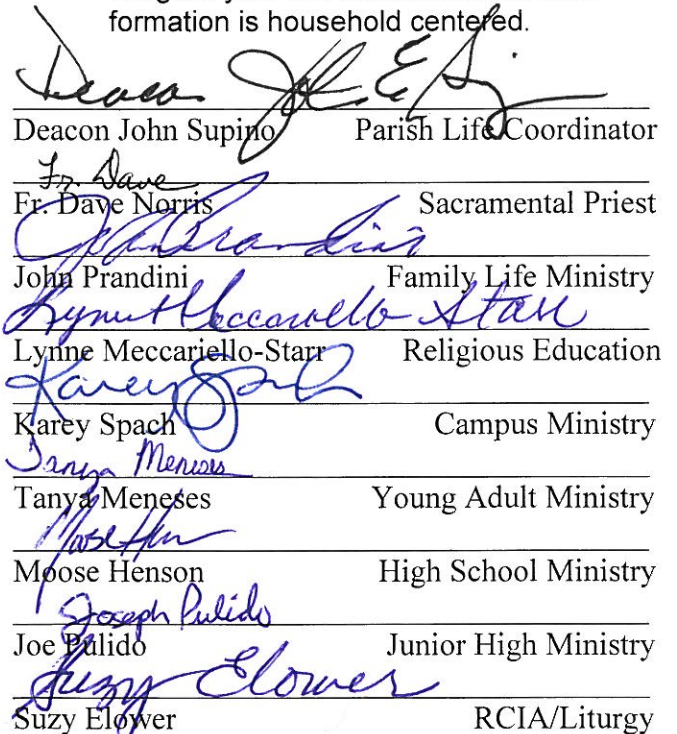 formation is household centered.
Deacon John E Supino
Deacon John Supino Parish Life Coordinator
Fr. Dave
Fr. Dave Norris Sacramental Priest
John Prandini
John Prandini Family Life Ministry
Lynne Meccariello-Starr
Lynne Meccariello-Starr Religious Education
Karey Spach
Karey Spach Campus Ministry
Tanya Meneses
Tanya Meneses Young Adult Ministry
Moose Henson
Moose Henson High School Ministry
Joseph Pulido
Joe Pulido Junior High Ministry
Suzy Elower
Suzy Elower RCIA/Liturgy